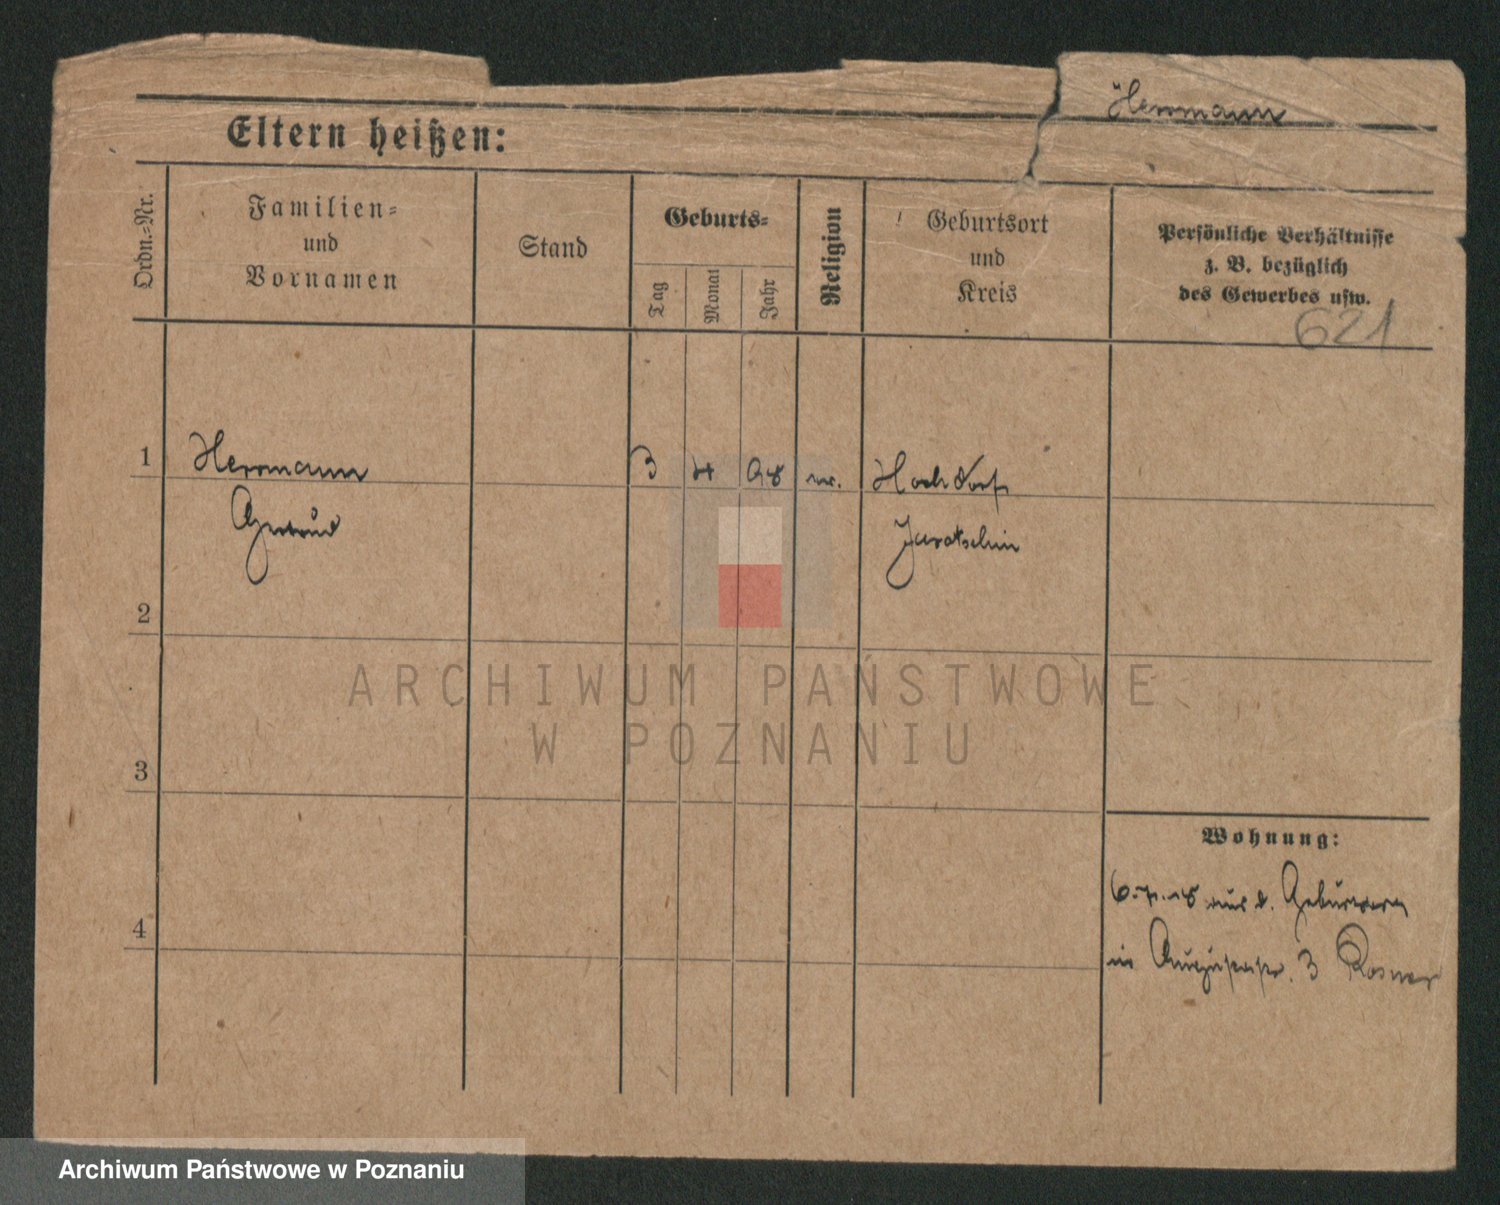 Herrmann
Eltern heißen:
Ordn.-Nr.
Familien-
und
Vornamen
Stand
Geburts-
Tag
Monat
Jahr
Religion
Geburtsort
und
Kreis
Persönliche Verhältnisse
z. B. bezüglich
des Gewerbes usw.
621
1
Herrmann
3 4 98
Hochdorf
Gertrud
Jarotschin
2
ARCHIWUM PAŃSTWOWE
W POZNANIU
3
Wohnung:
4
aus d.
in 3
Archiwum Państwowe w Poznaniu